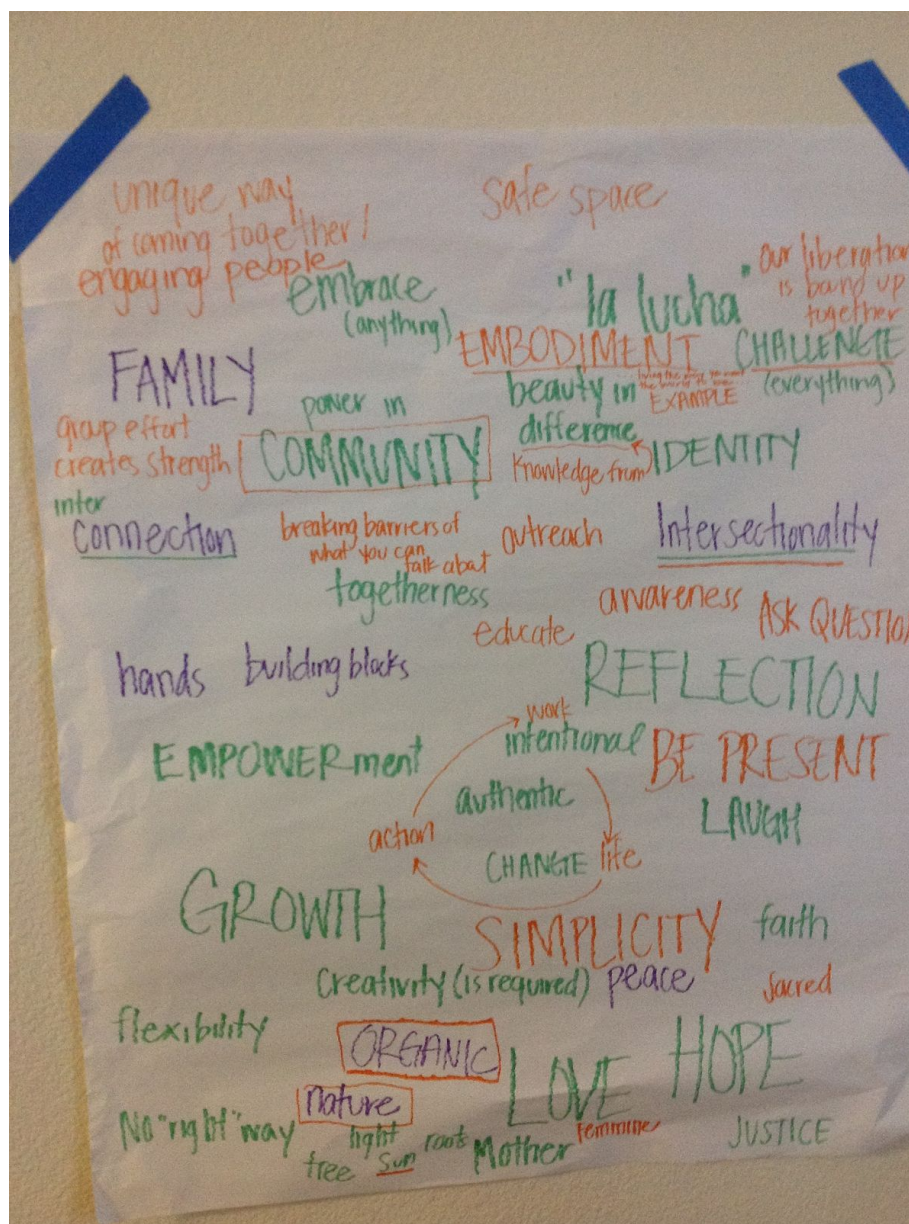 unique way
of coming together /
engaging people
safe space
embrace
(anything)
"la lucha"
our liberation
is bound up
together
EMBODIMENT
CHALLENGE
(everything)
FAMILY
beauty in
EXAMPLE
difference
power in
COMMUNITY
group effort
creates strength
Knowledge from
IDENTITY
inter
connection
breaking barriers of
what you can
talk about
outreach
Intersectionality
togetherness
educate
awareness
ASK QUESTIO
hands
building blocks
REFLECTION
work
intentional
BE PRESENT
EMPOWERment
authentic
LAUGH
action
CHANGE
life
GROWTH
SIMPLICITY
faith
Creativity (is required)
peace
sacred
flexibility
ORGANIC
LOVE
HOPE
nature
No "right" way
light
roots
tree
Sun
Mother
Femmine
JUSTICE